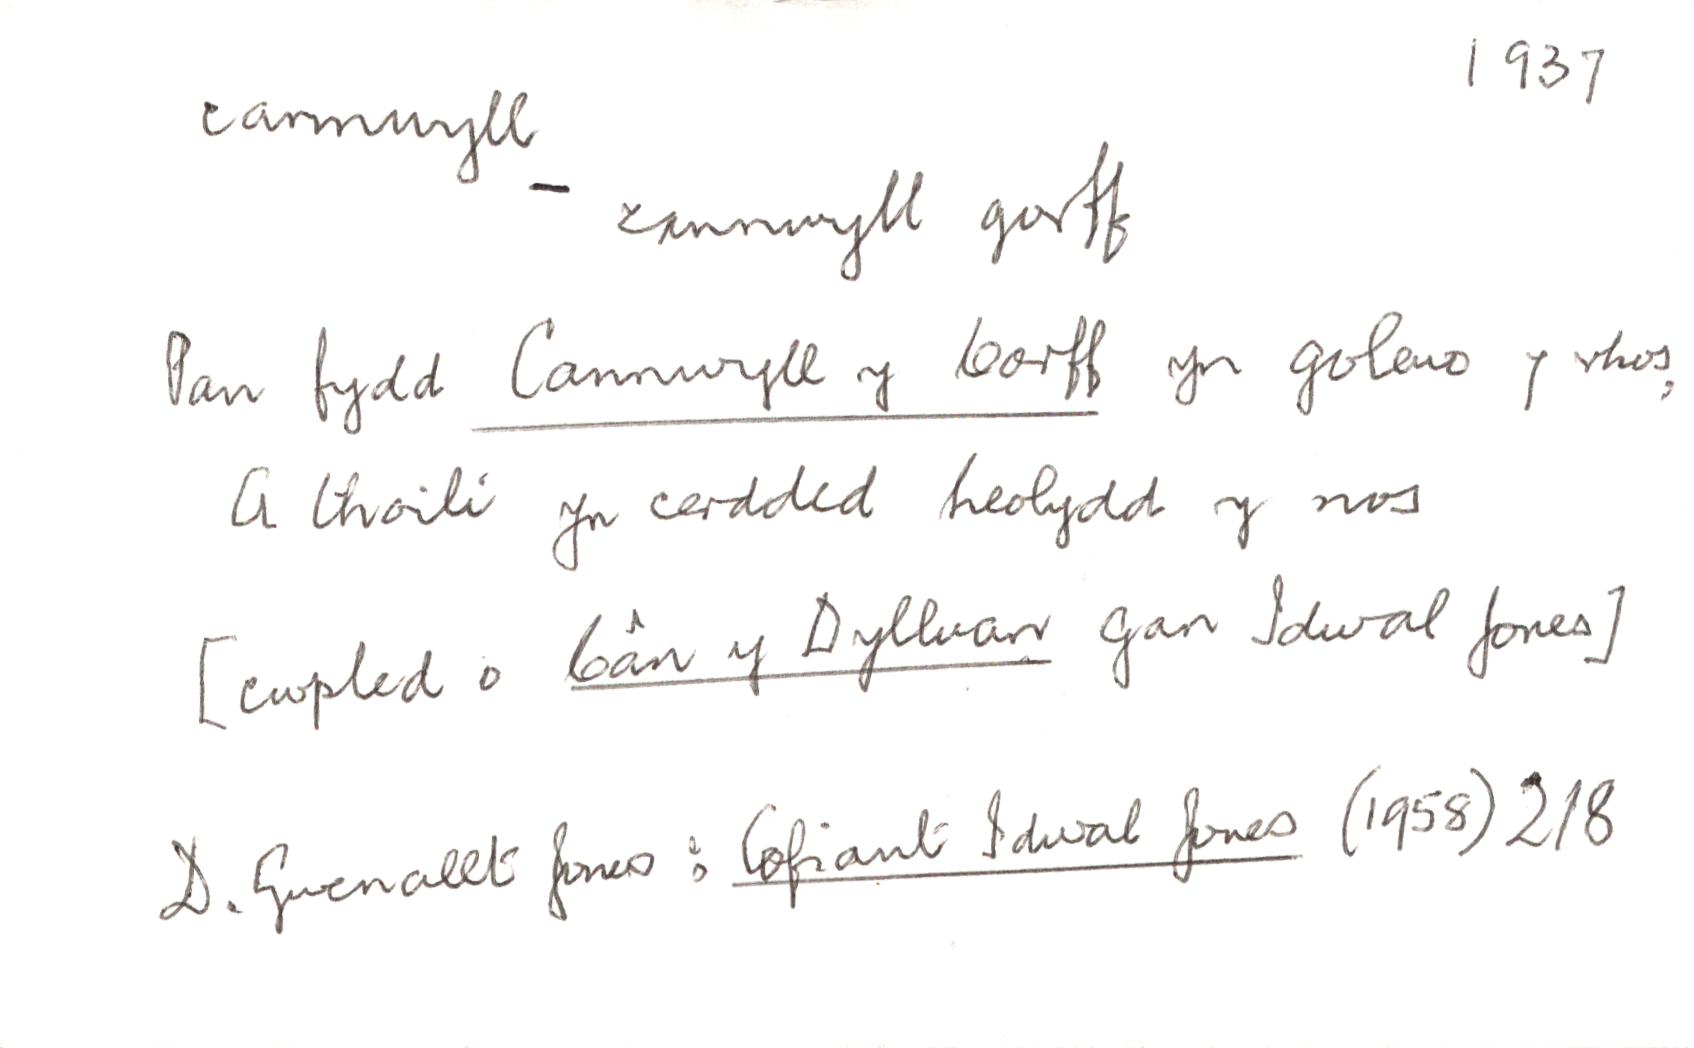 1937
cannwyll
- cannwyll gorff
Pan fydd Cannwyll y Corff yn goleuo y rhos,
A thoili yn cerdded heolydd y nos
[cwpled o Cân y Dylluan gan Idwal Jones]
D. Gwenallt Jones: Cofiant Idwal Jones (1958) 218